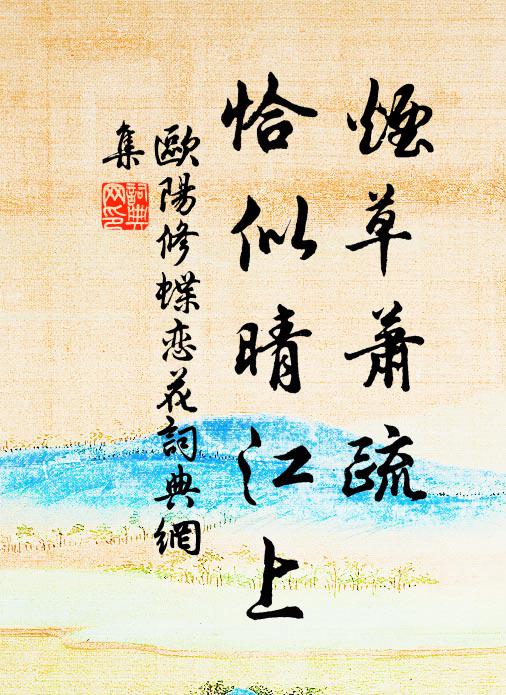 煙草蕭疏
恰似晴江上
歐陽修蝶恋花詞典網
集
詞典網印